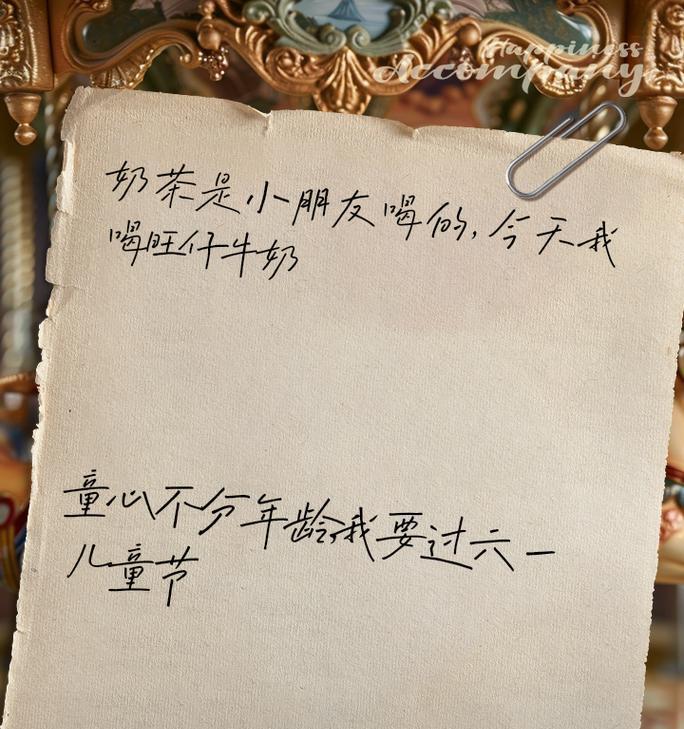 Happiness
Accompany
奶茶是小朋友喝的,今天我
喝旺仔牛奶
童心不分年龄,我要过六一
儿童节